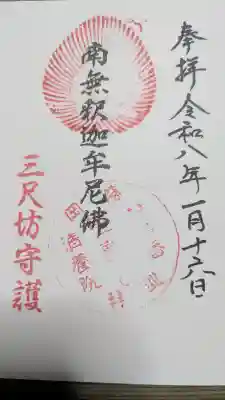 奉拝令和八年一月十六日
南無釈迦牟尼佛
三尺坊守護